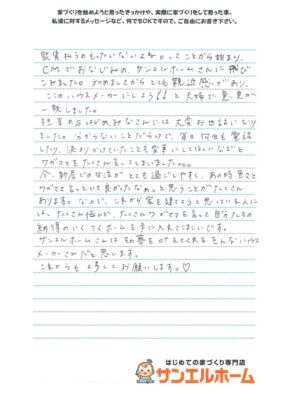 家づくりを始めようと思ったきっかけや、実際に家づくりをして困った事、
私達に対するメッセージなど、何でもOKですので、ご自由にお書き下さい。
家賃払うのもったいないよねぇ。ってことから始まり、
CMでおなじみの、サンエルホームさんに飛び
こみました。初めましてからとても親近感があり、
ここのハウスメーカーにしよう!!と夫婦で意見が
一致しました。
担当の方はじめ、みなさんには大変お世話になり
ました。分からないことだらけで、毎日何回も電話
したり、決まりかけていたことを変更にしてほしいなどと
ワガママをたくさん言ってしまいました。。。
今、新居での生活がとても過ごしやすく、あの時思ったこと
ワガママ言っといて良かったなぁ。と思うことがたくさん
あります。なので、これから家を建てようと思っている人に
は、たくさん悩んで、たくさんワガママを言って自分たちの
納得のいくマイホームを手に入れてほしいです。
サンエルホームさんはその夢を叶えてくれるそんなハウス
メーカーさんだと思います。
これからもよろしくお願いします。♡
はじめての家づくり専門店
サンエルホーム